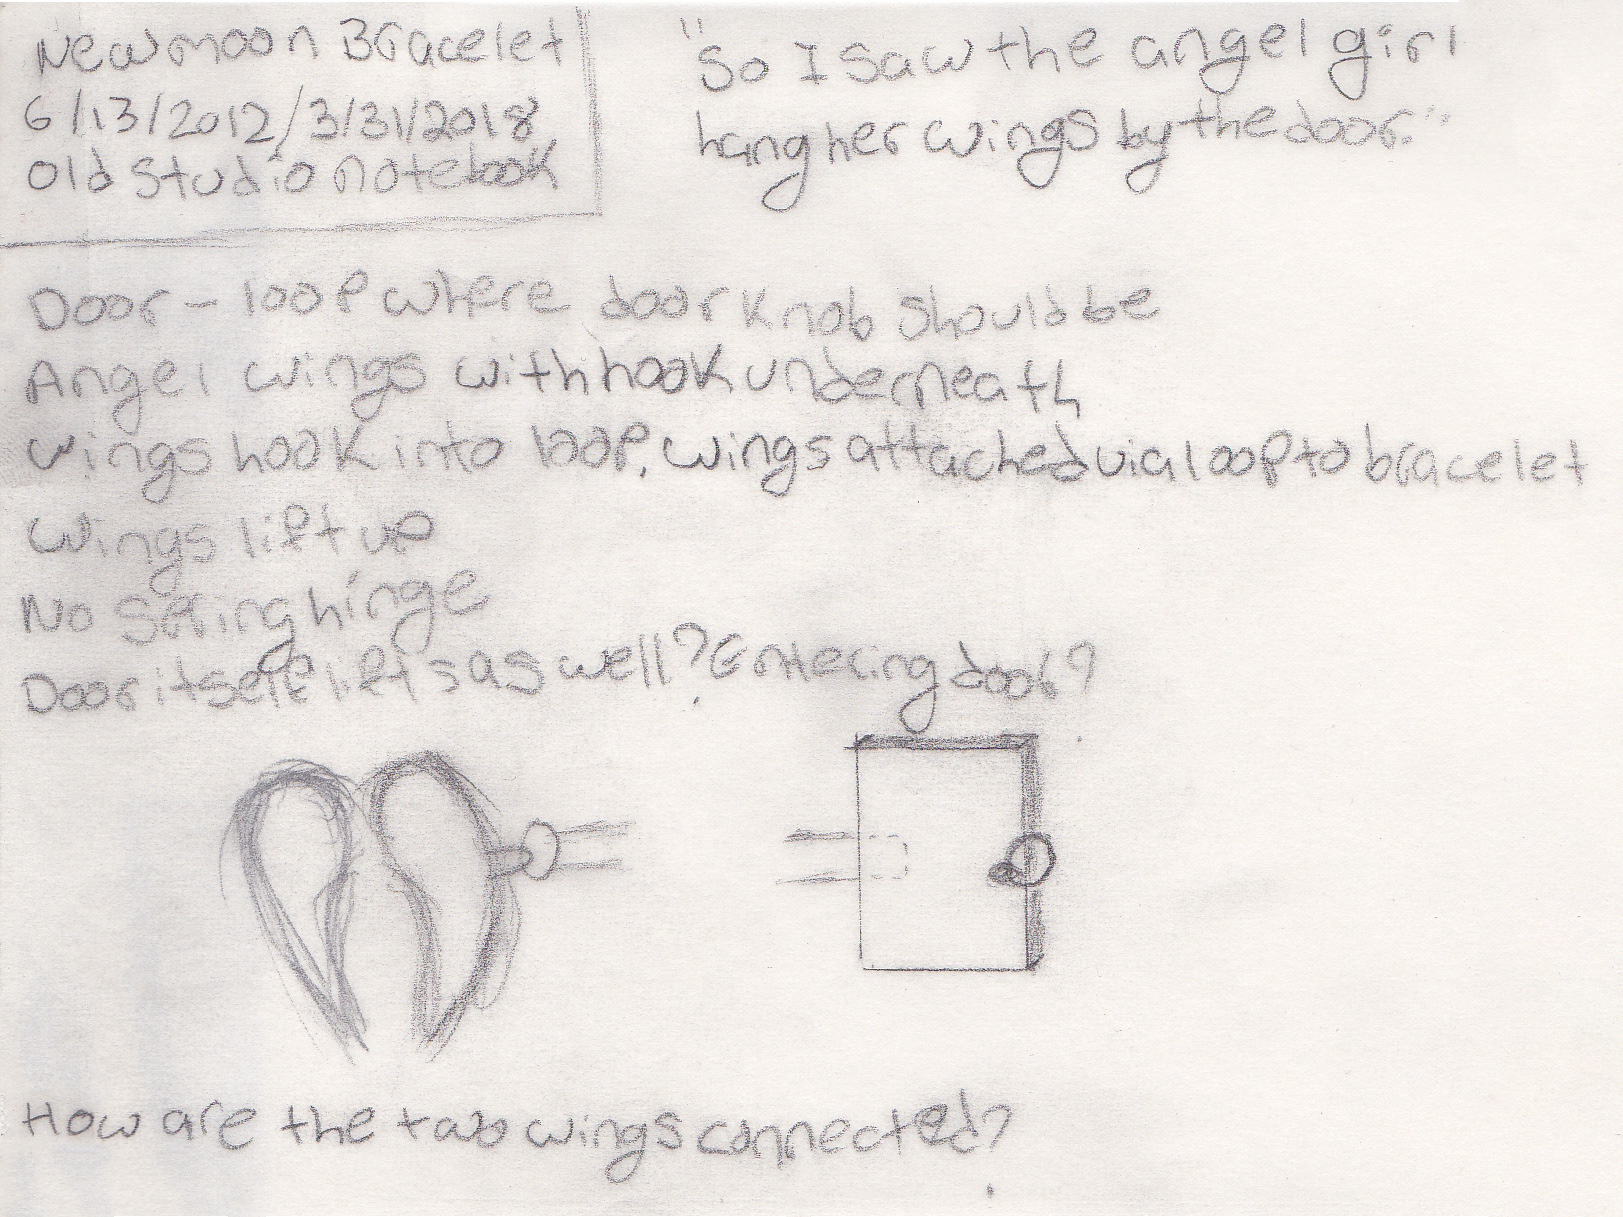 New moon Bracelet
6/13/2012/3/31/2018
old studio notebook
"So I saw the angel girl
hang her wings by the door."
Door - loop where door knob should be
Angel wings with hook underneath
wings hook into loop, wings attached via loop to bracelet
wings lift up
No spring hinge
Door itself lifts as well? Entering door?
How are the two wings connected?